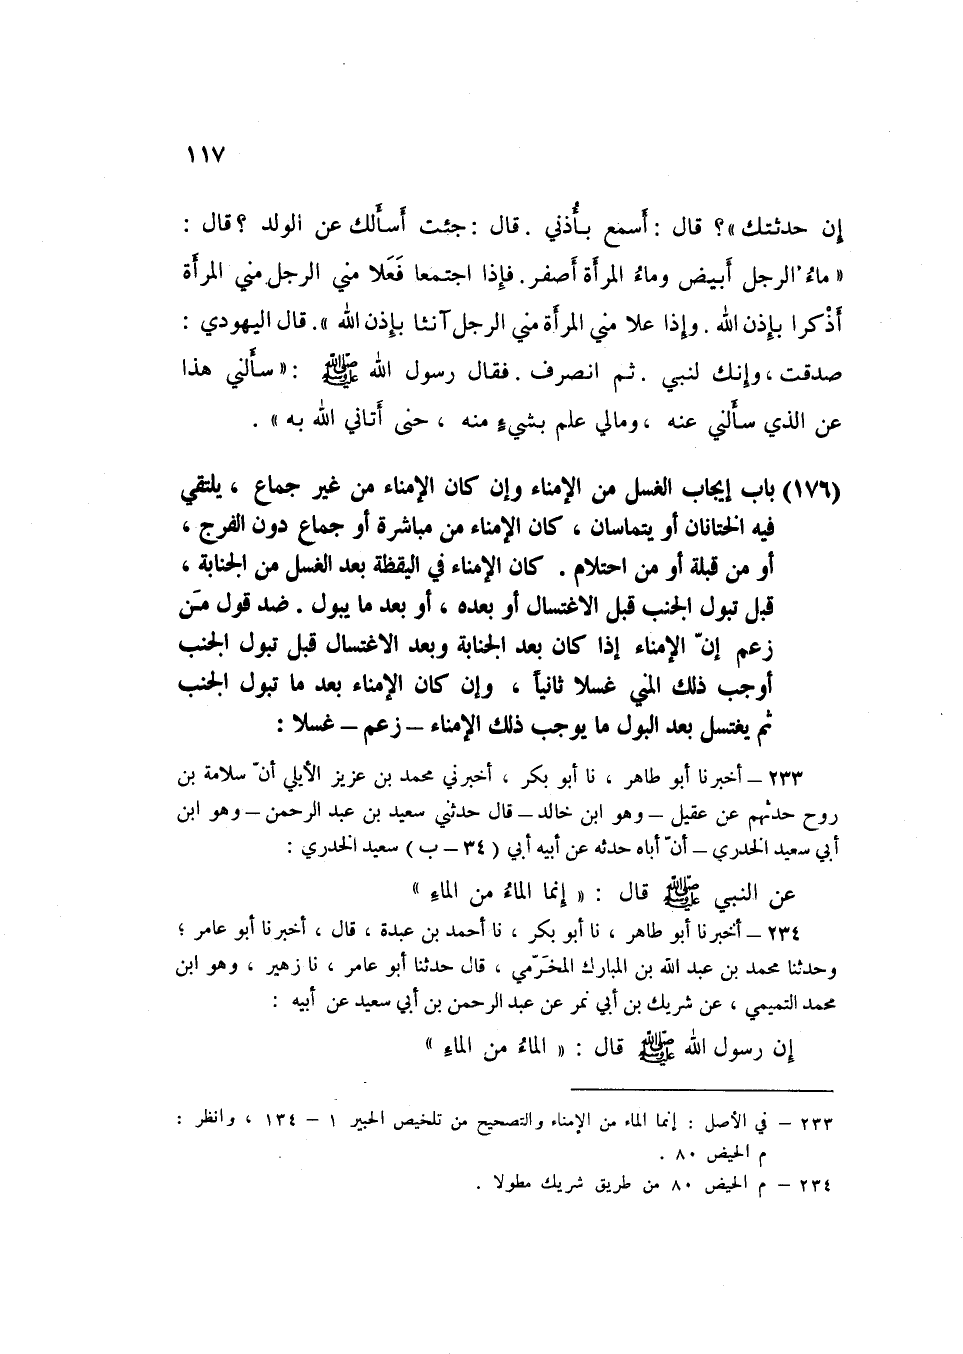 ١١٧
إن حدثتك »؟ قال : أسمع بأُذني . قال : جئت أسألك عن الولد ؟ قال :
« ماءُ الرجل أبيض وماءُ المرأة أصفر . فإذا اجتمعا فَعَلا مني الرجل مني المرأة
أذْكرا بإذن الله . وإذا علا مني المرأة مني الرجل آنثا بإذن الله » . قال اليهودي :
صدقت ، وإنك لنبي . ثم انصرف . فقال رسول الله ﷺ : « سألني هذا
عن الذي سألني عنه ، ومالي علم بشيءٍ منه ، حتى أتاني الله به » .
(١٧٦) باب إيجاب الغسل من الإمناء وإن كان الإمناء من غير جماع ، يلتقي
فيه الختانان أو يتماسان ، كان الإمناء من مباشرة أو جماع دون الفرج ،
أو من قبلة أو من احتلام . كان الإمناء في اليقظة بعد الغسل من الجنابة ،
قبل تبول الجنب قبل الاغتسال أو بعده ، أو بعد ما يبول . ضد قول مَن
زعم إنّ الإمناء إذا كان بعد الجنابة وبعد الاغتسال قبل تبول الجنب
أوجب ذلك المني غسلا ثانياً ، وإن كان الإمناء بعد ما تبول الجنب
ثم يغتسل بعد البول ما يوجب ذلك الإمناء – زعم – غسلا :
٢٣٣ – أخبرنا أبو طاهر ، نا أبو بكر ، أخبرني محمد بن عزيز الأيلي أنّ سلامة بن
روح حدثهم عن عقيل – وهو ابن خالد – قال حدثني سعيد بن عبد الرحمن – وهو ابن
أبي سعيد الخدري – أنّ أباه حدثه عن أبيه أبي ( ٣٤ – ب ) سعيد الخدري :
عن النبي ﷺ قال : « إنما الماءُ من الماءِ »
٢٣٤ – أخبرنا أبو طاهر ، نا أبو بكر ، نا أحمد بن عبدة ، قال ، أخبرنا أبو عامر ؛
وحدثنا محمد بن عبد الله بن المبارك المخَرّمي ، قال حدثنا أبو عامر ، نا زهير ، وهو ابن
محمد التميمي ، عن شريك بن أبي نمر عن عبد الرحمن بن أبي سعيد عن أبيه :
إن رسول الله ﷺ قال : « الماءُ من الماءِ »
٢٣٣ – في الأصل : إنما الماء من الإمناء والتصحيح من تلخيص الحبير ١ – ١٣٤ ، وانظر :
م الحيض ٨٠ .
٢٣٤ – م الحيض ٨٠ من طريق شريك مطولا .